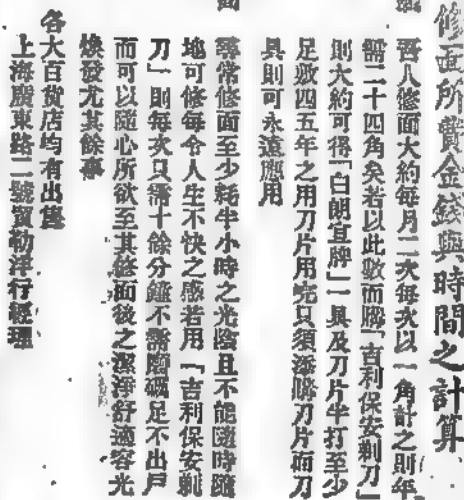 修面所費金錢與時間之計算
吾人修面大約每月二次每次以一角計之則年
需二十四角矣若以此數而購「吉利保安剃刀」
則大約可得「白朗宜牌」一具及刀片半打至少
足敷四五年之用刀片用完只須添購刀片而刀
具則可永遠應用
尋常修面至少耗半小時之光陰且不能隨時隨
地可修每令人生不快之感若用「吉利保安剃
刀」則每次只需十餘分鐘不需磨礪足不出戶
而可以隨心所欲至其修面後之潔淨舒適容光
煥發尤其餘事
各大百貨店均有出售
上海廣東路二號貿勒洋行經理